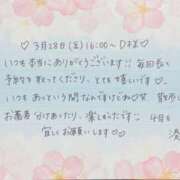 ♡ 3月28日(金) 16:00〜 D様 ♡
いつも本当にありがとうございます!! 毎回長く
予約を取ってくださり、とても嬉しいです♡
いつもあっという間なんですけどね♡笑 散歩
お蕎麦 分けあったり、楽しかったです!! 4月も
宜しくお願いします♡